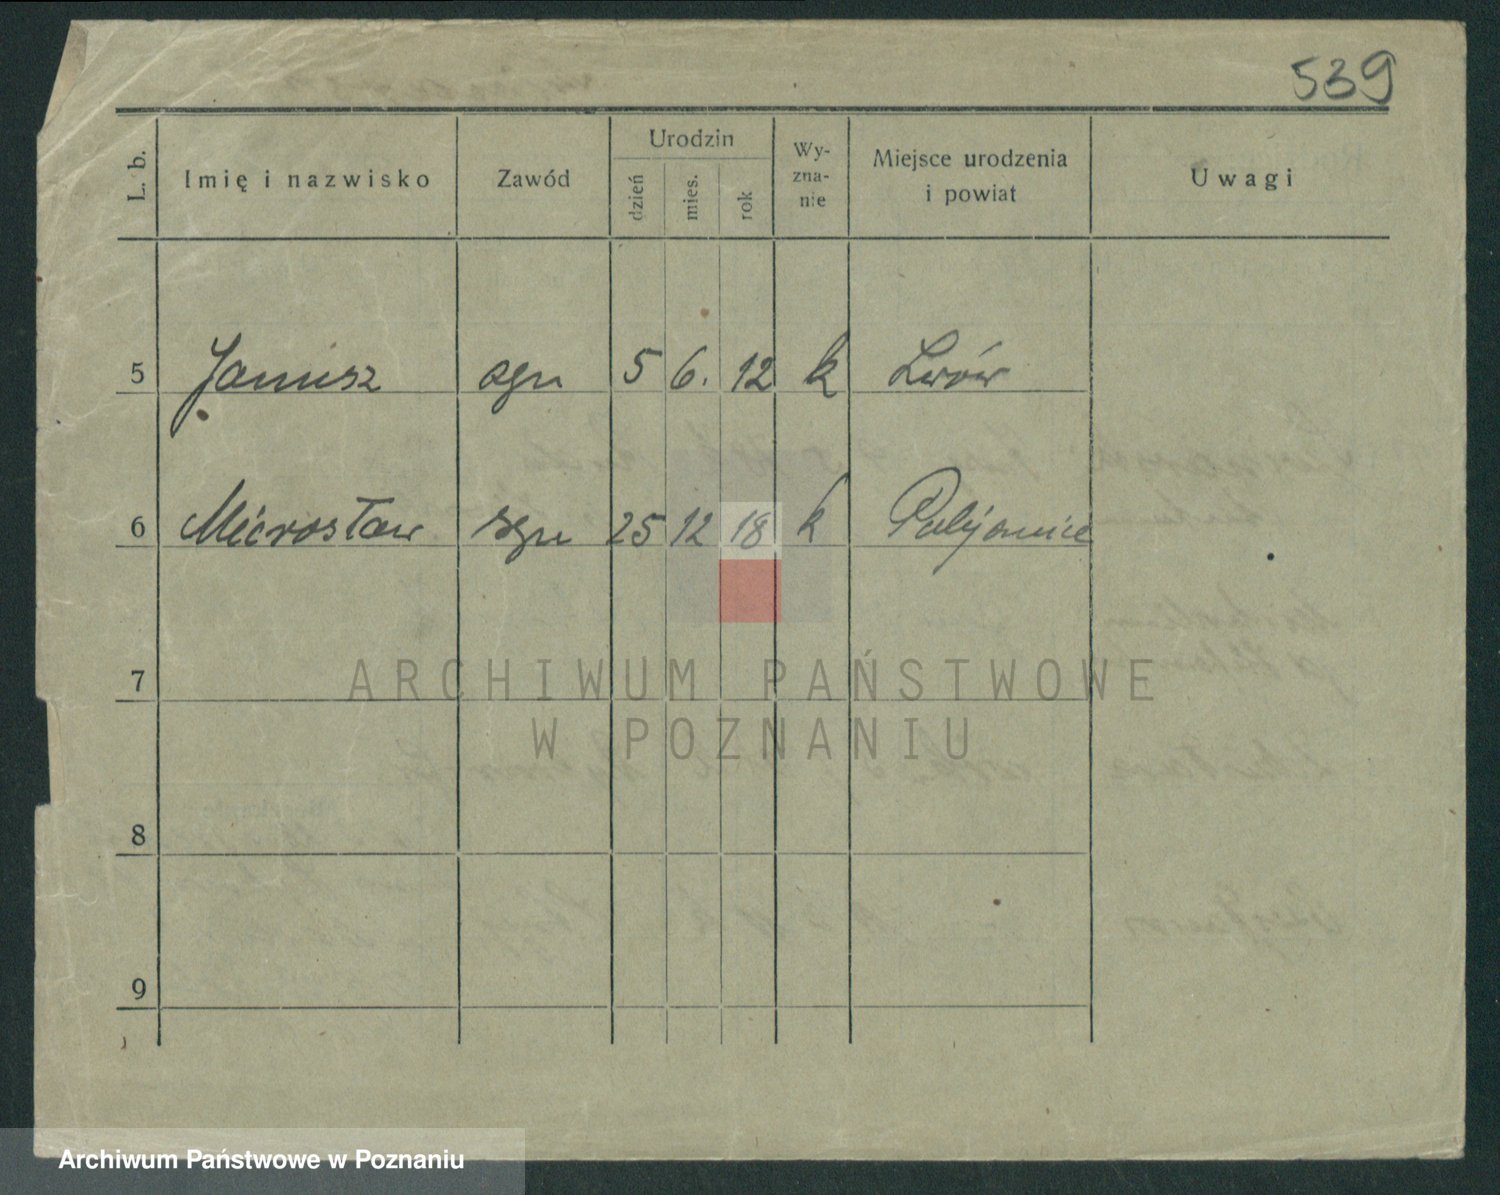 539
L. b.
Imię i nazwisko
Zawód
Urodzin
dzień
mies.
rok
Wy-
zna-
nie
Miejsce urodzenia
i powiat
Uwagi
5 Janusz syn 5 6. 12 k Lwów
6 Mirosław syn 25 12 18 k
7
8
9
ARCHIWUM PAŃSTWOWE
W POZNANIU
Archiwum Państwowe w Poznaniu